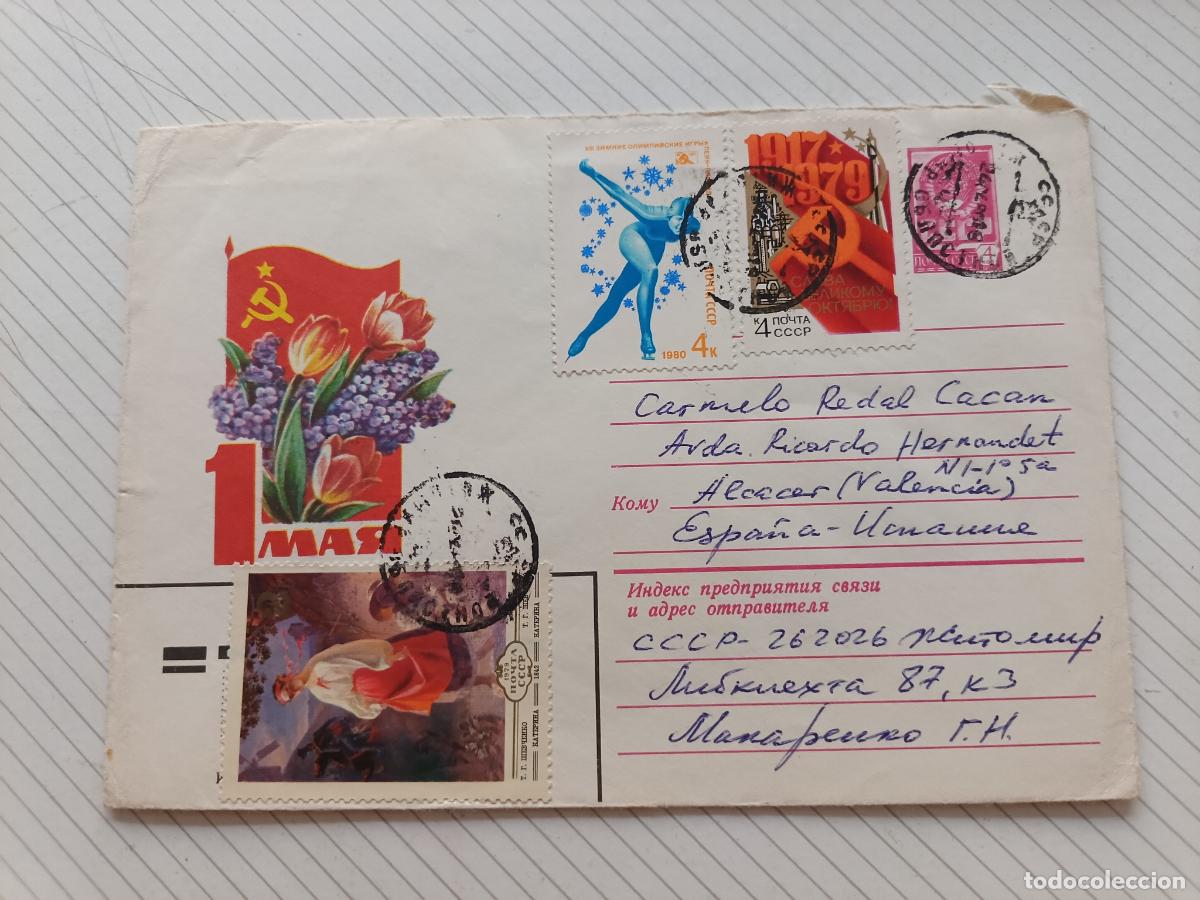 XIII ЗИМНИЕ ОЛИМПИЙСКИЕ ИГРЫ
ПОЧТА СССР
1980 4К
1917
1979
СЛАВА
ВЕЛИКОМУ
ОКТЯБРЮ!
К 4 ПОЧТА
СССР
ПОЧТА СССР 4
СССР
1 МАЯ
Carmelo Redal Cacan
Avda. Ricardo Hernandet
N1-1º 5a
Кому Alcacer (Valencia)
España - Испания
Индекс предприятия связи
и адрес отправителя
СССР - 262026 Житомир
Либкнехта 87, к 3
Макаренко Г.Н.
Т. Г. ШЕВЧЕНКО
КАТЕРИНА 1842 КАТЕРИНА
1979
ПОЧТА
СССР
todocoleccion